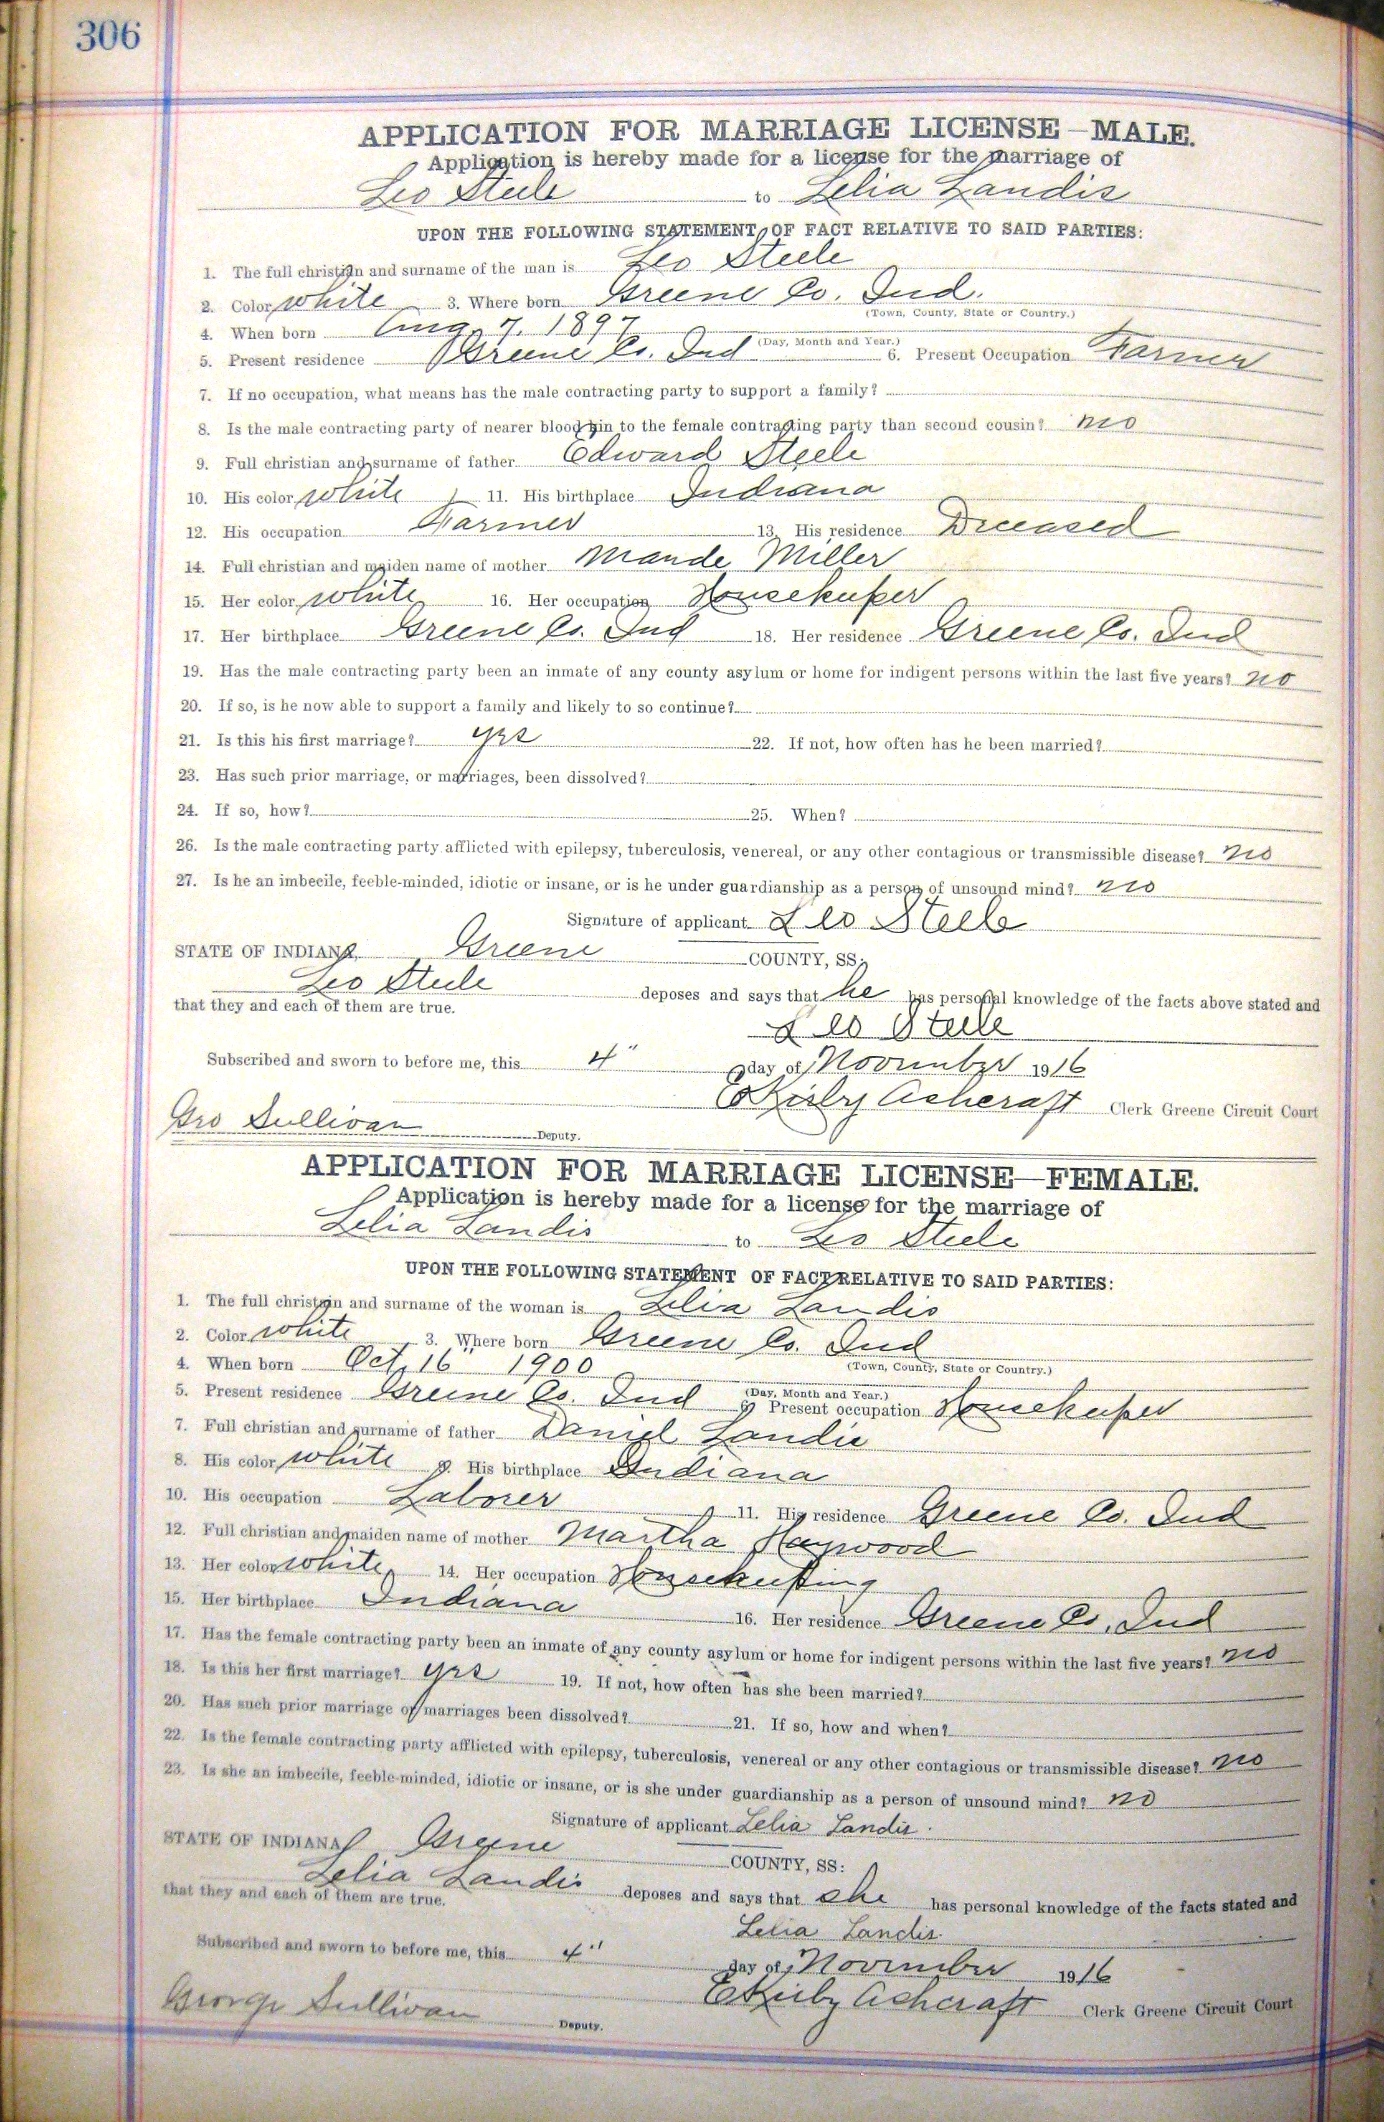 306
APPLICATION FOR MARRIAGE LICENSE—MALE.
Application is hereby made for a license for the marriage of
Leo Steele to Lelia Landis
UPON THE FOLLOWING STATEMENT OF FACT RELATIVE TO SAID PARTIES:
1. The full christian and surname of the man is Leo Steele
2. Color white 3. Where born Greene Co. Ind.
(Town, County, State or Country.)
4. When born Aug 7, 1897
(Day, Month and Year.)
5. Present residence Greene Co. Ind 6. Present Occupation Farmer
7. If no occupation, what means has the male contracting party to support a family?
8. Is the male contracting party of nearer blood kin to the female contracting party than second cousin? no
9. Full christian and surname of father Edward Steele
10. His color white 11. His birthplace Indiana
12. His occupation Farmer 13. His residence Deceased
14. Full christian and maiden name of mother Maude Miller
15. Her color white 16. Her occupation Housekeeper
17. Her birthplace Greene Co. Ind 18. Her residence Greene Co. Ind
19. Has the male contracting party been an inmate of any county asylum or home for indigent persons within the last five years? no
20. If so, is he now able to support a family and likely to so continue?
21. Is this his first marriage? yes 22. If not, how often has he been married?
23. Has such prior marriage, or marriages, been dissolved?
24. If so, how? 25. When?
26. Is the male contracting party afflicted with epilepsy, tuberculosis, venereal, or any other contagious or transmissible disease? no
27. Is he an imbecile, feeble-minded, idiotic or insane, or is he under guardianship as a person of unsound mind? no
Signature of applicant Leo Steele
STATE OF INDIANA, Greene COUNTY, SS:
Leo Steele deposes and says that he has personal knowledge of the facts above stated and
that they and each of them are true.
Leo Steele
Subscribed and sworn to before me, this 4" day of November 1916
E Kirby Ashcraft Clerk Greene Circuit Court
Geo Sullivan Deputy.
APPLICATION FOR MARRIAGE LICENSE—FEMALE.
Application is hereby made for a license for the marriage of
Lelia Landis to Leo Steele
UPON THE FOLLOWING STATEMENT OF FACT RELATIVE TO SAID PARTIES:
1. The full christian and surname of the woman is Lelia Landis
2. Color white 3. Where born Greene Co. Ind
(Town, County, State or Country.)
4. When born Oct 16" 1900
(Day, Month and Year.)
5. Present residence Greene Co. Ind 6. Present occupation Housekeeper
7. Full christian and surname of father Daniel Landis
8. His color white 9. His birthplace Indiana
10. His occupation Laborer 11. His residence Greene Co. Ind
12. Full christian and maiden name of mother Martha Haywood
13. Her color white 14. Her occupation Housekeeping
15. Her birthplace Indiana 16. Her residence Greene Co. Ind
17. Has the female contracting party been an inmate of any county asylum or home for indigent persons within the last five years? no
18. Is this her first marriage? yes 19. If not, how often has she been married?
20. Has such prior marriage or marriages been dissolved? 21. If so, how and when?
22. Is the female contracting party afflicted with epilepsy, tuberculosis, venereal or any other contagious or transmissible disease? no
23. Is she an imbecile, feeble-minded, idiotic or insane, or is she under guardianship as a person of unsound mind? no
Signature of applicant Lelia Landis.
STATE OF INDIANA Greene COUNTY, SS:
Lelia Landis deposes and says that she has personal knowledge of the facts stated and
that they and each of them are true.
Lelia Landis.
Subscribed and sworn to before me, this 4" day of November 1916
E Kirby Ashcraft Clerk Greene Circuit Court
George Sullivan Deputy.